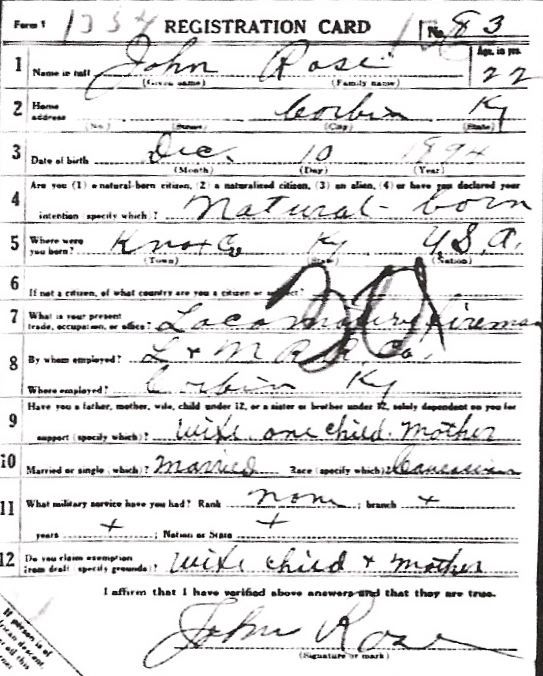 Form 1 1334 REGISTRATION CARD No. 83
1 Name in full John Rose Age, in yrs. 22
(Given name) (Family name)
2 Home address Corbin Ky
(No.) (Street) (City) (State)
3 Date of birth Dec. 10 1894
(Month) (Day) (Year)
Are you (1) a natural-born citizen, (2) a naturalized citizen, (3) an alien, (4) or have you declared your
4 intention (specify which)? Natural-born
5 Where were you born? Knox Co Ky U.S.A.
(Town) (State) (Nation)
6 If not a citizen, of what country are you a citizen or subject?
20
7 What is your present trade, occupation, or office? Locomotive Fireman
8 By whom employed? L + N R.R. Co.
Where employed? Corbin Ky
9 Have you a father, mother, wife, child under 12, or a sister or brother under 12, solely dependent on you for
support (specify which)? Wife one child. Mother
10 Married or single (which)? Married Race (specify which)? Caucasian
11 What military service have you had? Rank none ; branch +
years + ; Nation or State +
12 Do you claim exemption from draft (specify grounds)? Wife child + mother
I affirm that I have verified above answers and that they are true.
John Rose
(Signature or mark)
If person is of
African descent,
off this